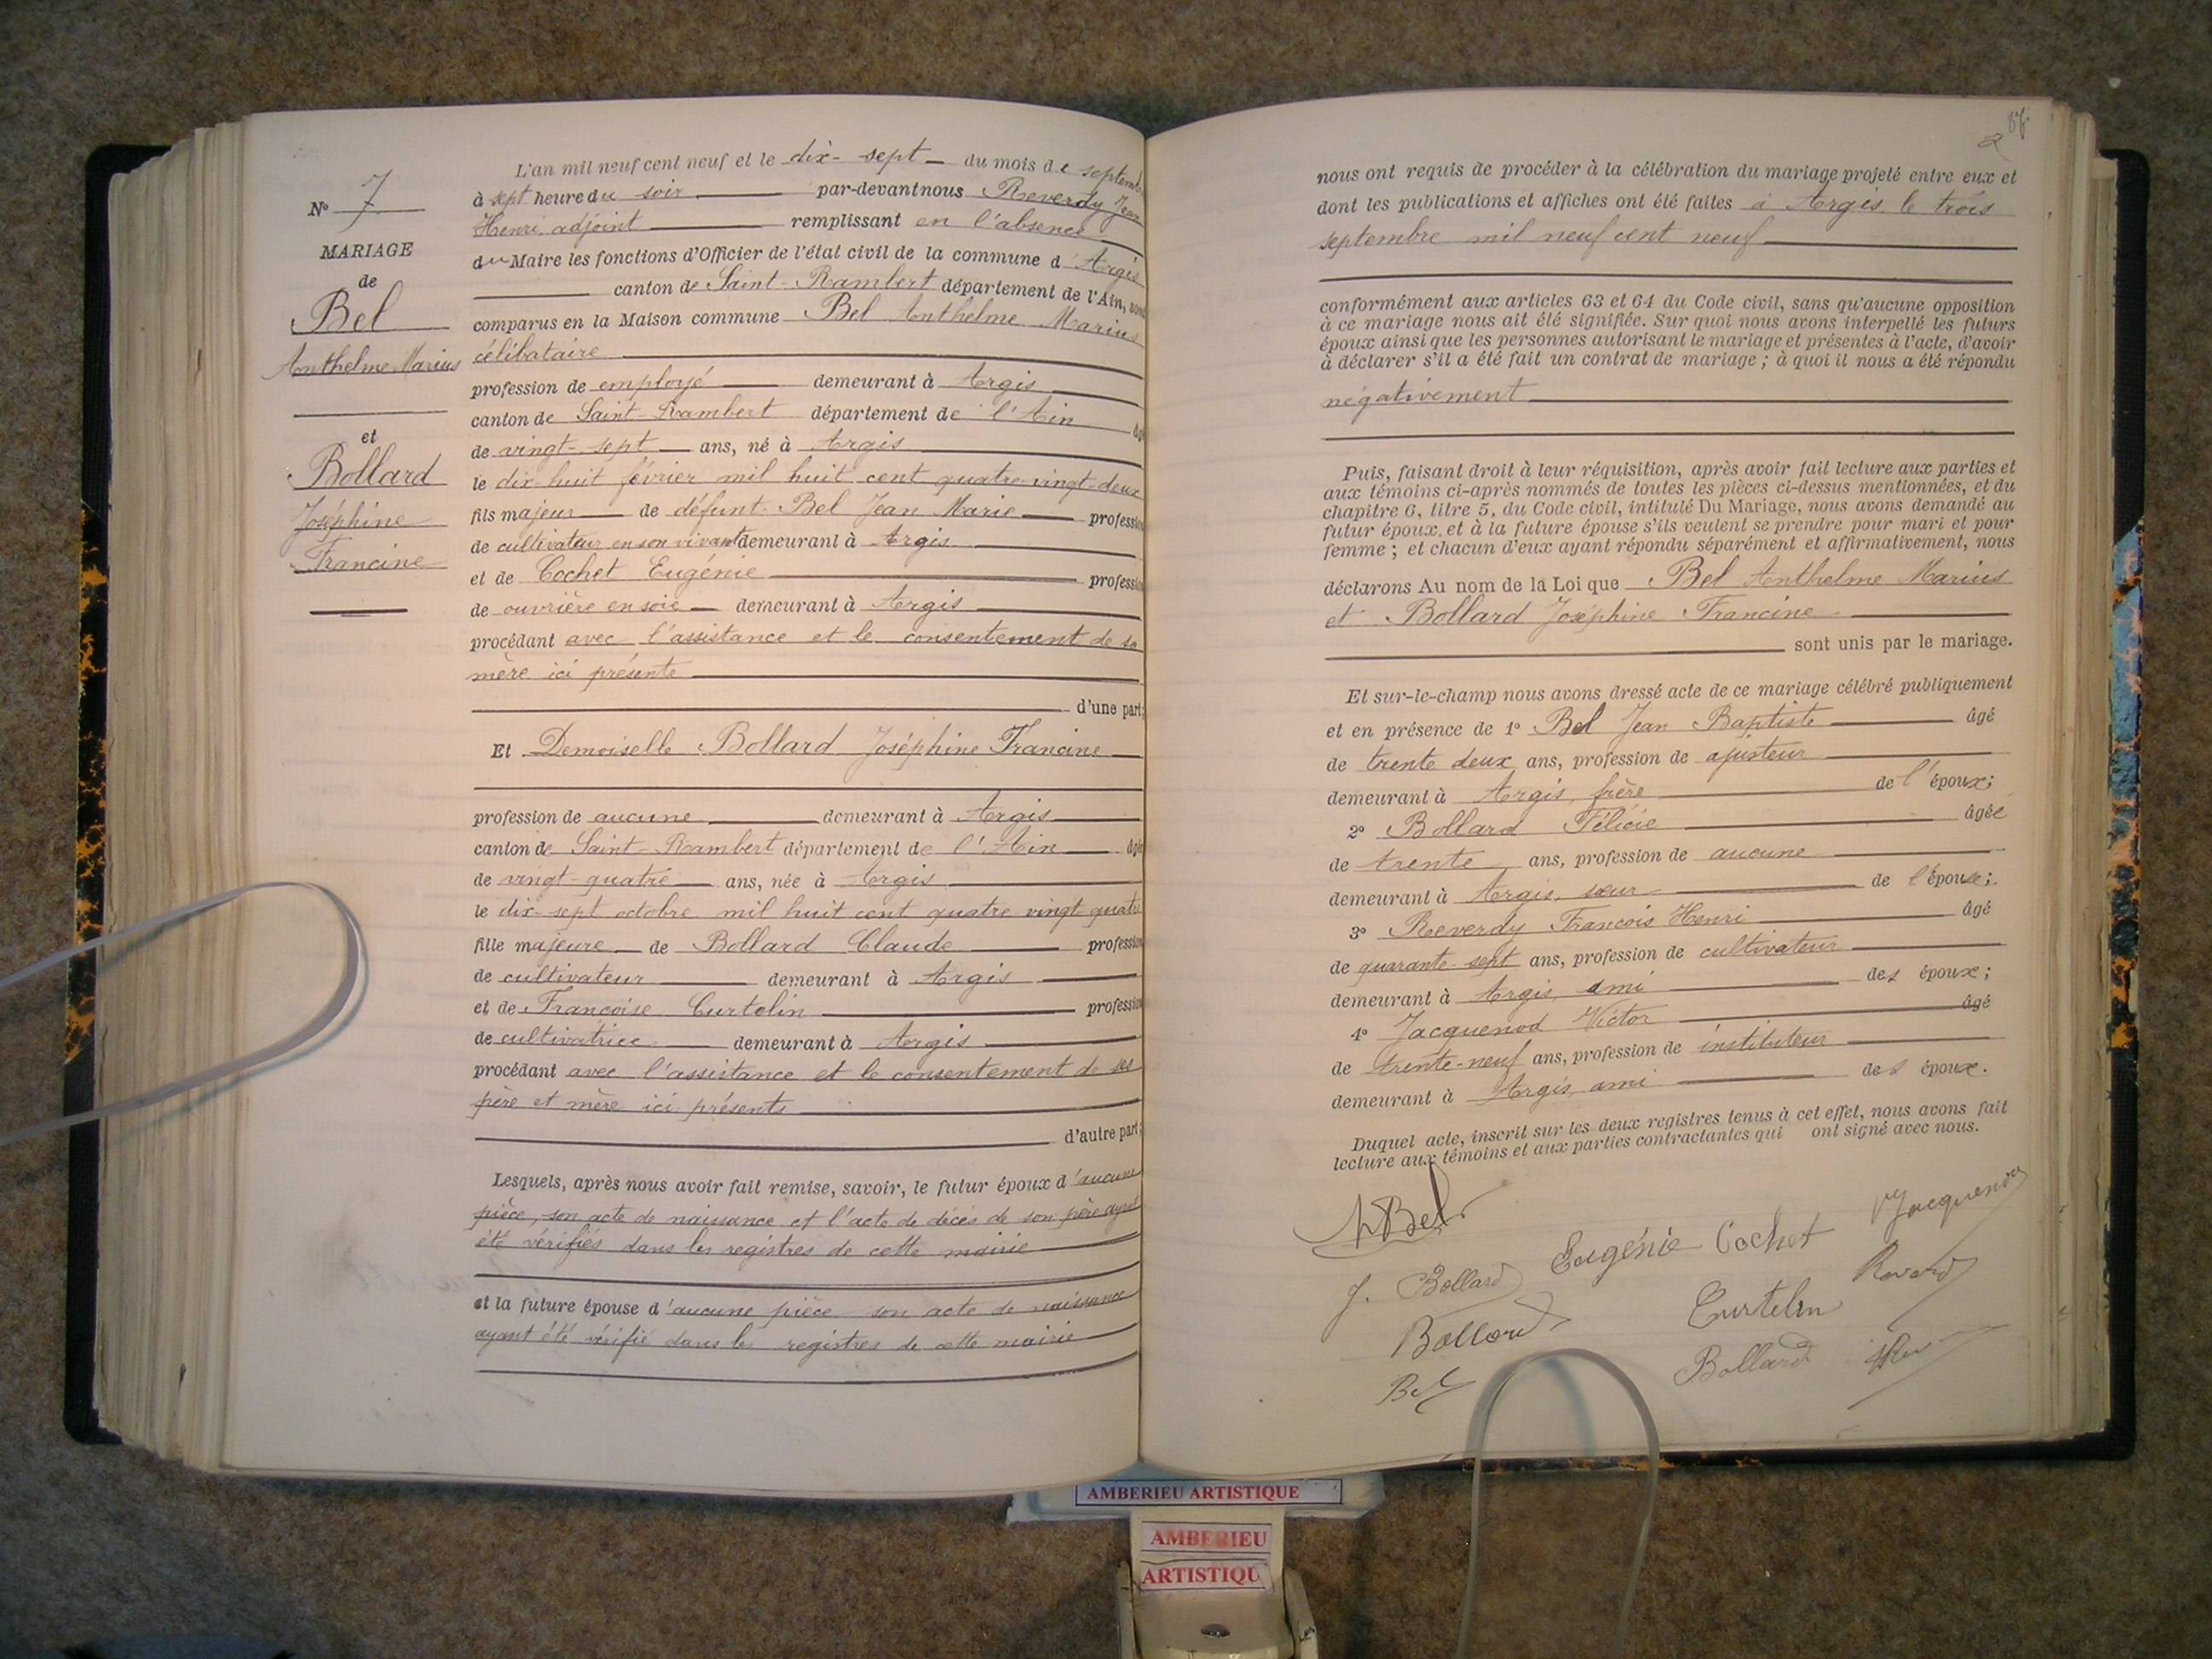 N° 7
MARIAGE
de
Bel
Anthelme Marius
et
Bollard
Joséphine
Francine
L'an mil neuf cent neuf et le dix-sept du mois de septembre
à sept heure du soir par-devant nous Reverdy Jean
Henri, adjoint remplissant en l'absence
du Maire les fonctions d'Officier de l'état civil de la commune d'Argis
canton de Saint-Rambert département de l'Ain, sont
comparus en la Maison commune Bel Anthelme Marius
célibataire
profession de employé demeurant à Argis
canton de Saint-Rambert département de l'Ain âgé
de vingt-sept ans, né à Argis
le dix-huit février mil huit cent quatre-vingt-deux
fils majeur de défunt Bel Jean Marie profession
de cultivateur en son vivant demeurant à Argis
et de Cochet Eugénie profession
de ouvrière en soie demeurant à Argis
procédant avec l'assistance et le consentement de sa
mère ici présente
d'une part;
Et Demoiselle Bollard Joséphine Francine
profession de aucune demeurant à Argis
canton de Saint-Rambert département de l'Ain âgée
de vingt-quatre ans, née à Argis
le dix-sept octobre mil huit cent quatre vingt quatre
fille majeure de Bollard Claude profession
de cultivateur demeurant à Argis
et de Françoise Curtelin profession
de cultivatrice demeurant à Argis
procédant avec l'assistance et le consentement de ses
père et mère ici présents
d'autre part;
Lesquels, après nous avoir fait remise, savoir, le futur époux d'aucune
pièce, son acte de naissance et l'acte de décès de son père ayant
été vérifiés dans les registres de cette mairie
et la future épouse d'aucune pièce son acte de naissance
ayant été vérifié dans les registres de cette mairie
86
2
nous ont requis de procéder à la célébration du mariage projeté entre eux et
dont les publications et affiches ont été faites à Argis le trois
septembre mil neuf cent neuf
conformément aux articles 63 et 64 du Code civil, sans qu'aucune opposition
à ce mariage nous ait été signifiée. Sur quoi nous avons interpellé les futurs
époux ainsi que les personnes autorisant le mariage et présentes à l'acte, d'avoir
à déclarer s'il a été fait un contrat de mariage ; à quoi il nous a été répondu
négativement
Puis, faisant droit à leur réquisition, après avoir fait lecture aux parties et
aux témoins ci-après nommés de toutes les pièces ci-dessus mentionnées, et du
chapitre 6, titre 5, du Code civil, intitulé Du Mariage, nous avons demandé au
futur époux et à la future épouse s'ils veulent se prendre pour mari et pour
femme ; et chacun d'eux ayant répondu séparément et affirmativement, nous
déclarons Au nom de la Loi que Bel Anthelme Marius
et Bollard Joséphine Francine
sont unis par le mariage.
Et sur-le-champ nous avons dressé acte de ce mariage célébré publiquement
et en présence de 1° Bel Jean Baptiste âgé
de trente deux ans, profession de ajusteur
demeurant à Argis, frère de l'époux;
2° Bollard Félicie âgée
de trente ans, profession de aucune
demeurant à Argis, sœur de l'épouse;
3° Reverdy François Henri âgé
de quarante-sept ans, profession de cultivateur
demeurant à Argis, ami des époux;
4° Jacquenod Victor âgé
de trente-neuf ans, profession de instituteur
demeurant à Argis, ami des époux.
Duquel acte, inscrit sur les deux registres tenus à cet effet, nous avons fait
lecture aux témoins et aux parties contractantes qui ont signé avec nous.
Bel
Eugénie Cochet
Vjacquenod
J. Bollard
Reverdy
Bollard
Curtelin
Bel
Bollard
AMBERIEU ARTISTIQUE
AMBERIEU
ARTISTIQU